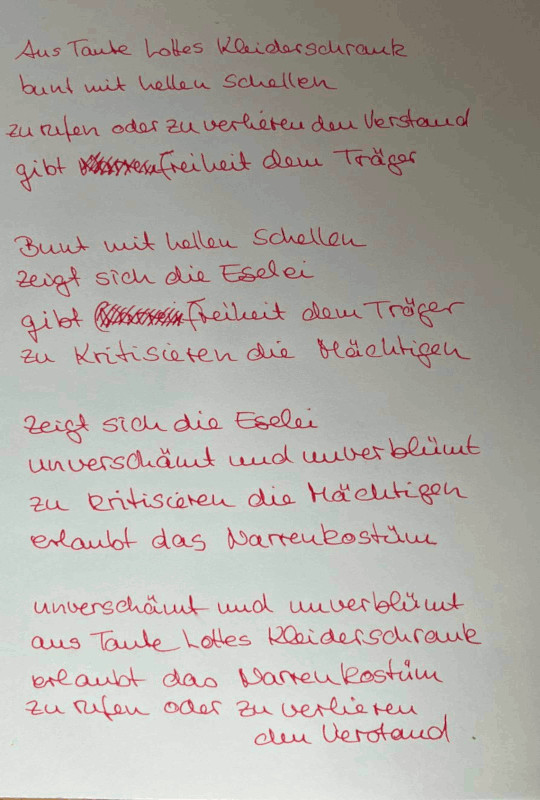 Aus Tante Lottes Kleiderschrank
bunt mit hellen Schellen
zu rufen oder zu verlieren den Verstand
gibt Freiheit dem Träger
Bunt mit hellen Schellen
zeigt sich die Eselei
gibt Freiheit dem Träger
zu kritisieren die Mächtigen
zeigt sich die Eselei
unverschämt und unverblümt
zu kritisieren die Mächtigen
erlaubt das Narrenkostüm
unverschämt und unverblümt
aus Tante Lottes Kleiderschrank
erlaubt das Narrenkostüm
zu rufen oder zu verlieren
den Verstand.